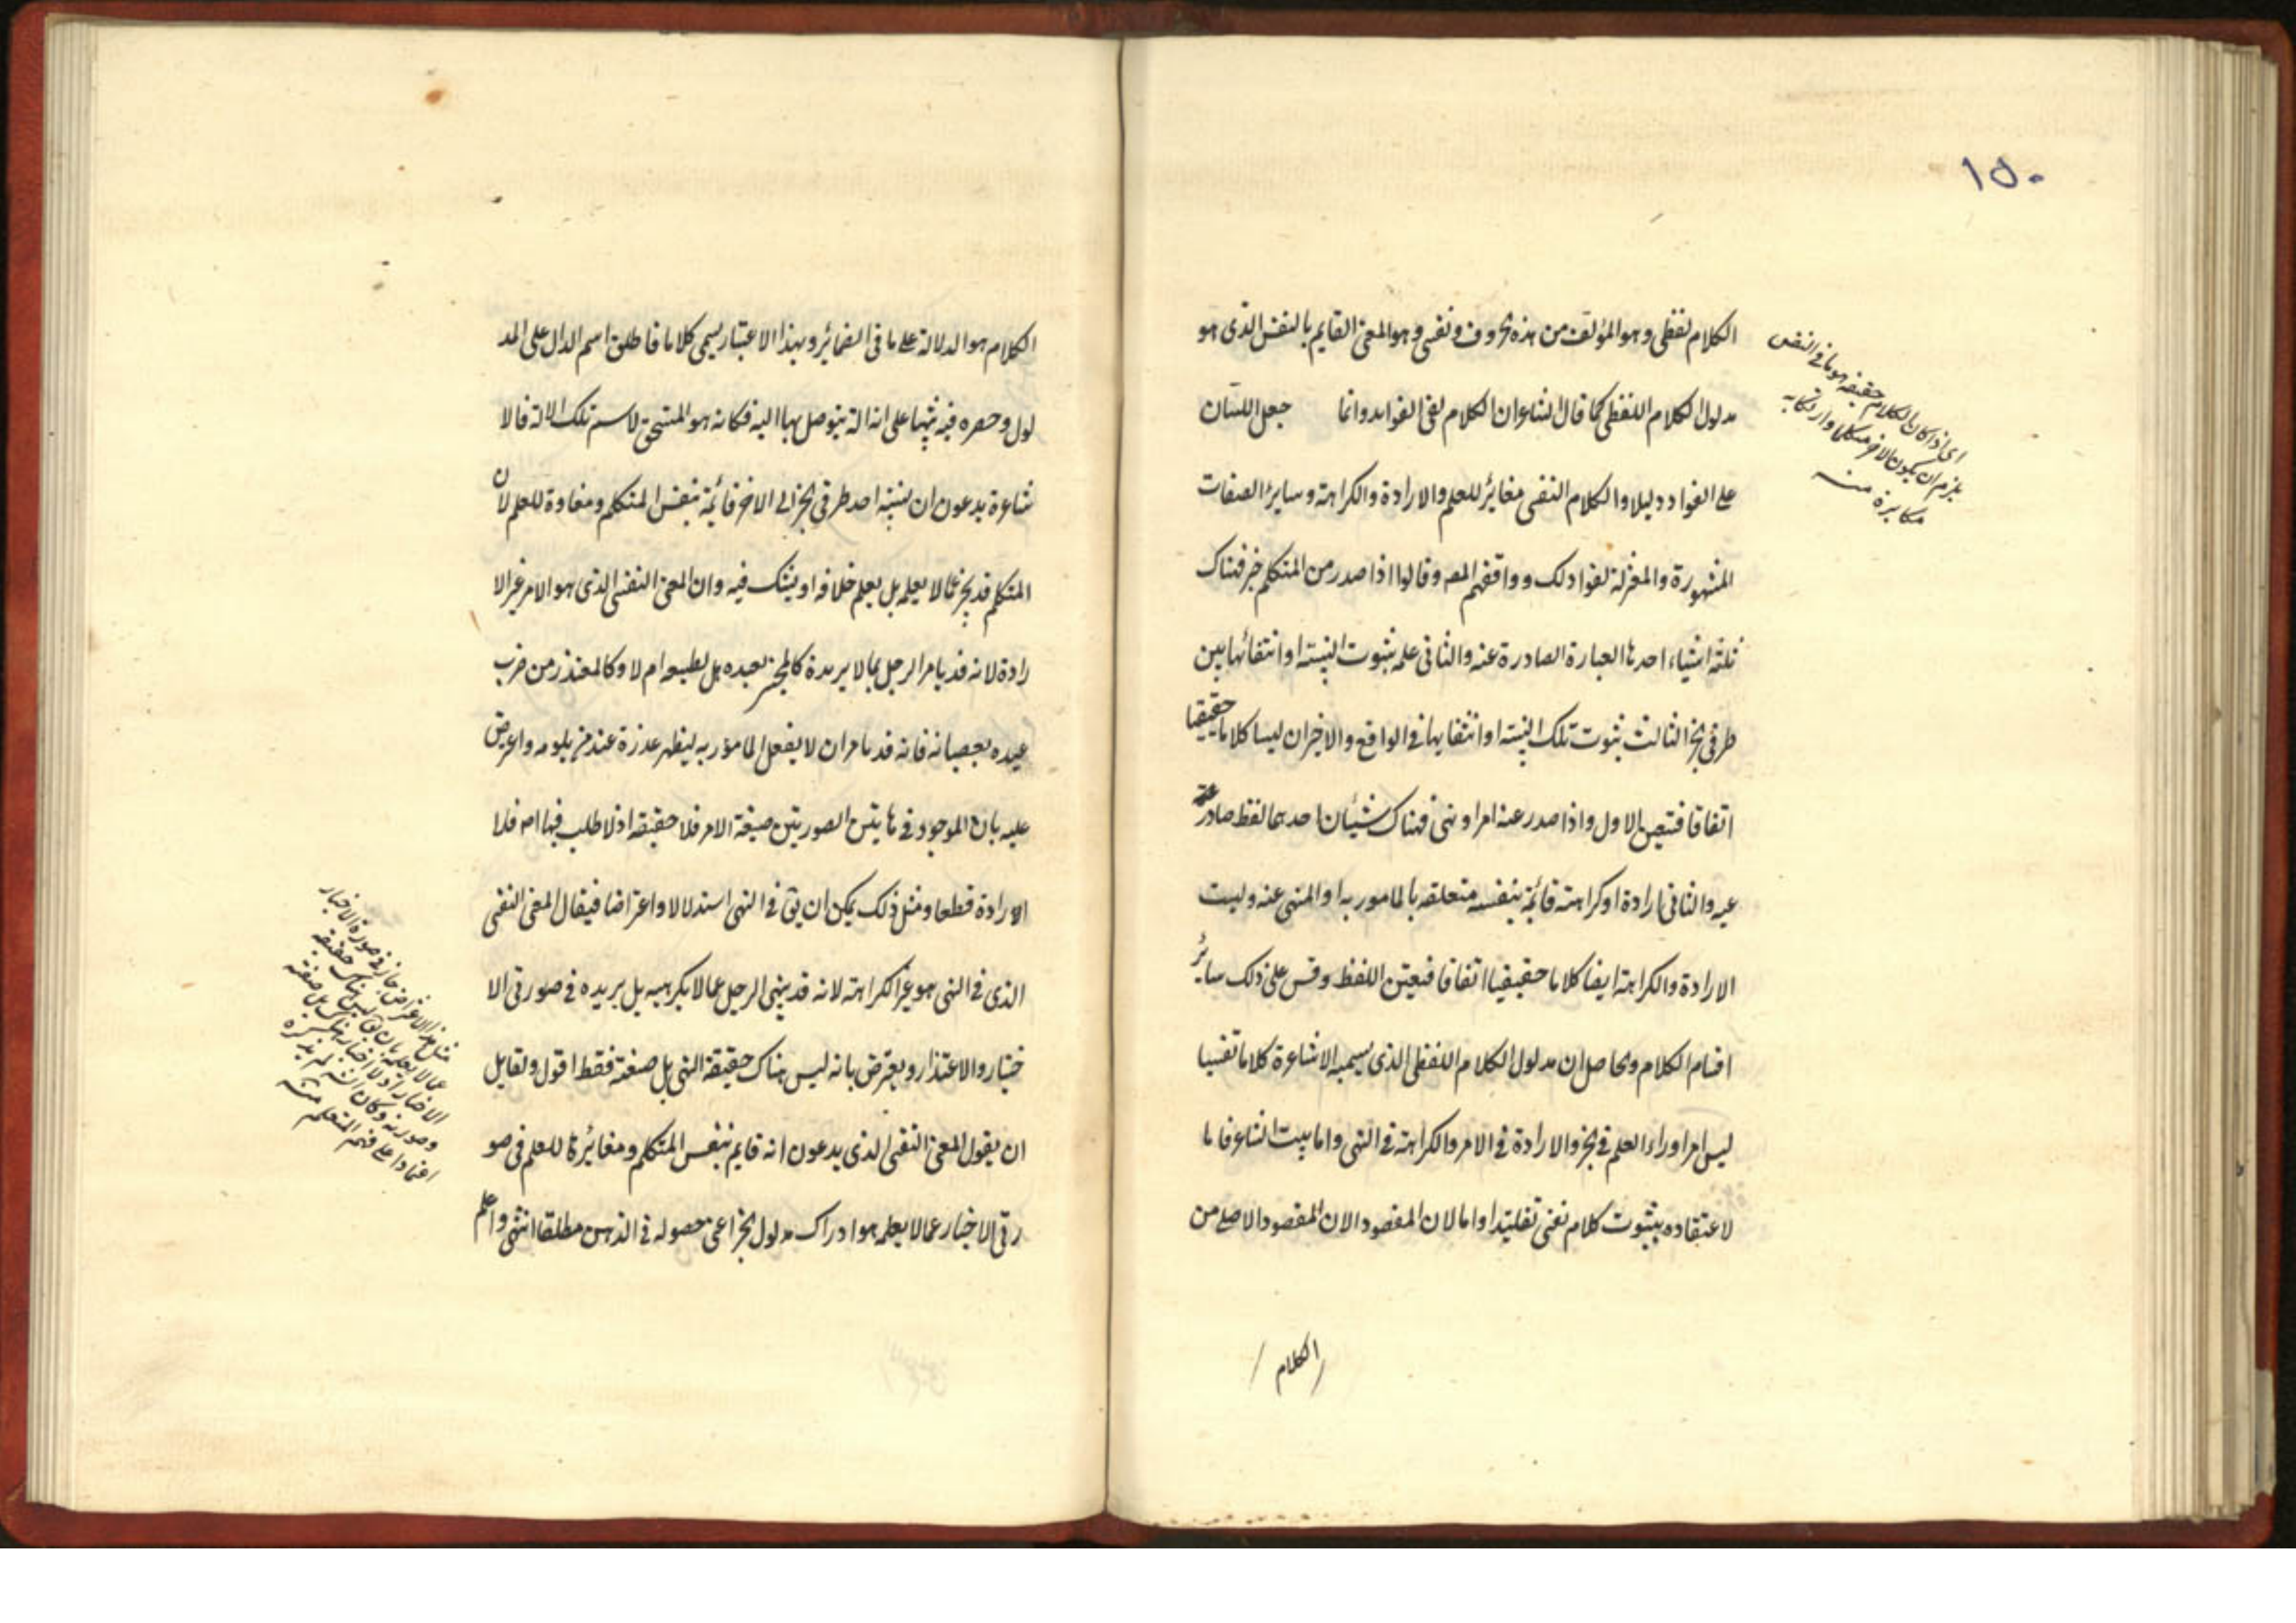 ١٥٠
الكلام لفظی وهو المؤلف من هذه الحروف ونفسی وهو المعنى القايم بالنفس الذی هو
مدلول الكلام اللفظی كما قال الشاعر ان الكلام لفی الفواد وانما جعل اللسان
على الفواد دليلا والكلام النفسی مغاير للعلم والارادة والكراهة وساير الصفات
المشهورة والمعتزلة نفوا ذلك ووافقهم المصـ وقالوا اذا صدر من المتكلم خبر فهناك
ثلثة اشياء احدها العبارة الصادرة عنه والثانی علمه بثبوت النسبة او انتفائها بين
طرفی الخبر الثالث ثبوت تلك النسبة او انتفايها فی الواقع والاخيران ليسا كلاما حقيقيا
اتفاقا فتعين الاول واذا صدر عنه امر او نهی فهناك شيئان احدهما لفظ صادر عنه
عنه والثانی ارادة او كراهة قائمة بنفسه متعلقه بالمامور به او المنهی عنه وليست
الارادة والكراهة ايضا كلاما حقيقيا اتفاقا فيعين اللفظ وقس على ذلك ساير
اقسام الكلام والحاصل ان مدلول الكلام اللفظی الذی يسميه الاشاعرة كلاما نفسيا
ليس امرا وراء العلم فی الخبر والارادة فی الامر والكراهة فی النهی واما بيت الشاعر فاما
لاعتقاده بثبوت كلام نفسی تقليدا واما لان المقصود الان المقصود الاصلی من
الكلام
ای اذا كان الكلام حقيقة هو ما فی النفس
يلزم ان يكون الاخرس متكلما وارتكابه
مكابرة منـه
الكلام هو الدلالة على ما فی الضمائر وبهذا الاعتبار يسمى كلاما فاطلق اسم الدال على المد
لول وحصره فيه تنبيها على انه الة يتوصل بها اليه فكانه هو المستحق لاسم تلك الالة فالا
شاعرة يدعون ان نسبة احد طرفی الخبر الی الاخر قائمة بنفس المتكلم ومغاوة للعلم لان
المتكلم قد يخبر عما لا يعلمه بل يعلم خلافه او يشك فيه وان المعنى النفسی الذی هو الامر غير الا
رادة لانه قد يامر الرجل بما لا يريده كالمختبر لعبده هل يطيعه ام لا وكالمعتذر من ضرب
عبده بعصيانه فانه قد يامر ان لا يفعل المامؤر به ليظهر عذره عند من يلومه واعرض
عليه بان الموجود فی هاتين الصورتين صيغة الامر فلا حقيقة اذ لا طلب فيها اصلا
الارادة قطعا ومثل ذلك يمكن ان يق فی النهی استدلالا واعتراضا فيقال المعنى النفسی
الذی فی النهی هو غير الكراهة لانه قد ينهی الرجل عما لا يكرهه بل يريده فی صورتی الا
ختبار والاعتذار ويعترض بانه ليس هناك حقيقة النهی بل صيغة فقط اقول ولقايل
ان يقول المعنى النفسی الذی يدعون انه قايم بنفس المتكلم ومغايرة للعلم فی صو
رتی الاخبار عما لا يعلمه هو ادراك مدلول الخبر اعنی حصوله فی الذهن مطلقا انتهى واعلم
مثل هذا الاعتراض جار فی صورة الاخبار
عما لا يعلمه بان يق ليس هناك حقيقة
الاخبار اذ لا اخبار هناك بل صيغته
وصورته وكان الشـ لم يذكره
اعتمادا على فهم المتعلم منـه